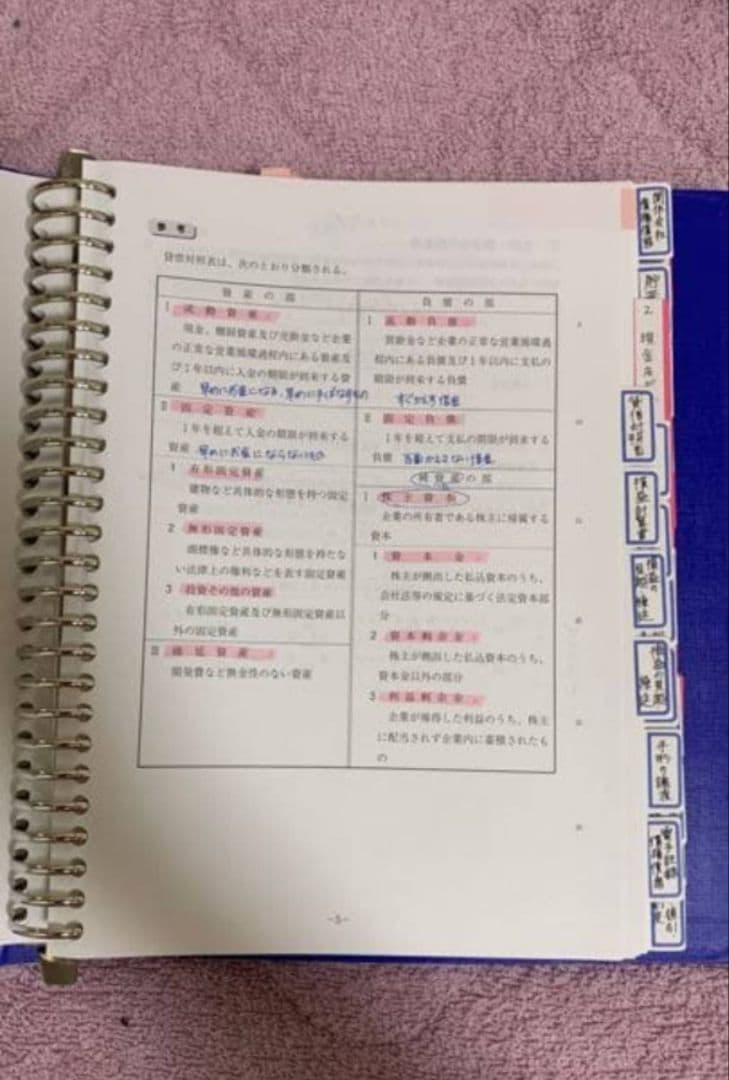 参考
貸借対照表は、次のとおり分類される。
資産の部
Ⅰ 流動資産
現金、棚卸資産及び売掛金など企業
の正常な営業循環過程内にある資産及
び1年以内に入金の期限が到来する資
産 早めにお金になる、早めに
Ⅱ 固定資産
1年を超えて入金の期限が到来する
資産 早めにお金にならないもの
1 有形固定資産
建物など具体的な形態を持つ固定
資産
2 無形固定資産
商標権など具体的な形態を持たな
い法律上の権利などを表す固定資産
3 投資その他の資産
有形固定資産及び無形固定資産以
外の固定資産
Ⅲ 繰延資産
開発費など換金性のない資産
負債の部
Ⅰ 流動負債
買掛金など企業の正常な営業循環過
程内にある負債及び1年以内に支払の
期限が到来する負債
すぐかえす借金
Ⅱ 固定負債
1年を超えて支払の期限が到来する
負債 当面かえさない借金
純資産の部
Ⅰ 株主資本
企業の所有者である株主に帰属する
資本
1 資本金
株主が拠出した払込資本のうち、
会社法等の規定に基づく法定資本部
分
2 資本剰余金
株主が拠出した払込資本のうち、
資本金以外の部分
3 利益剰余金
企業が獲得した利益のうち、株主
に配当されず企業内に蓄積されたも
の
-5-
貸借対照表
損益計算書
手形の譲渡
電子記録
債権債務